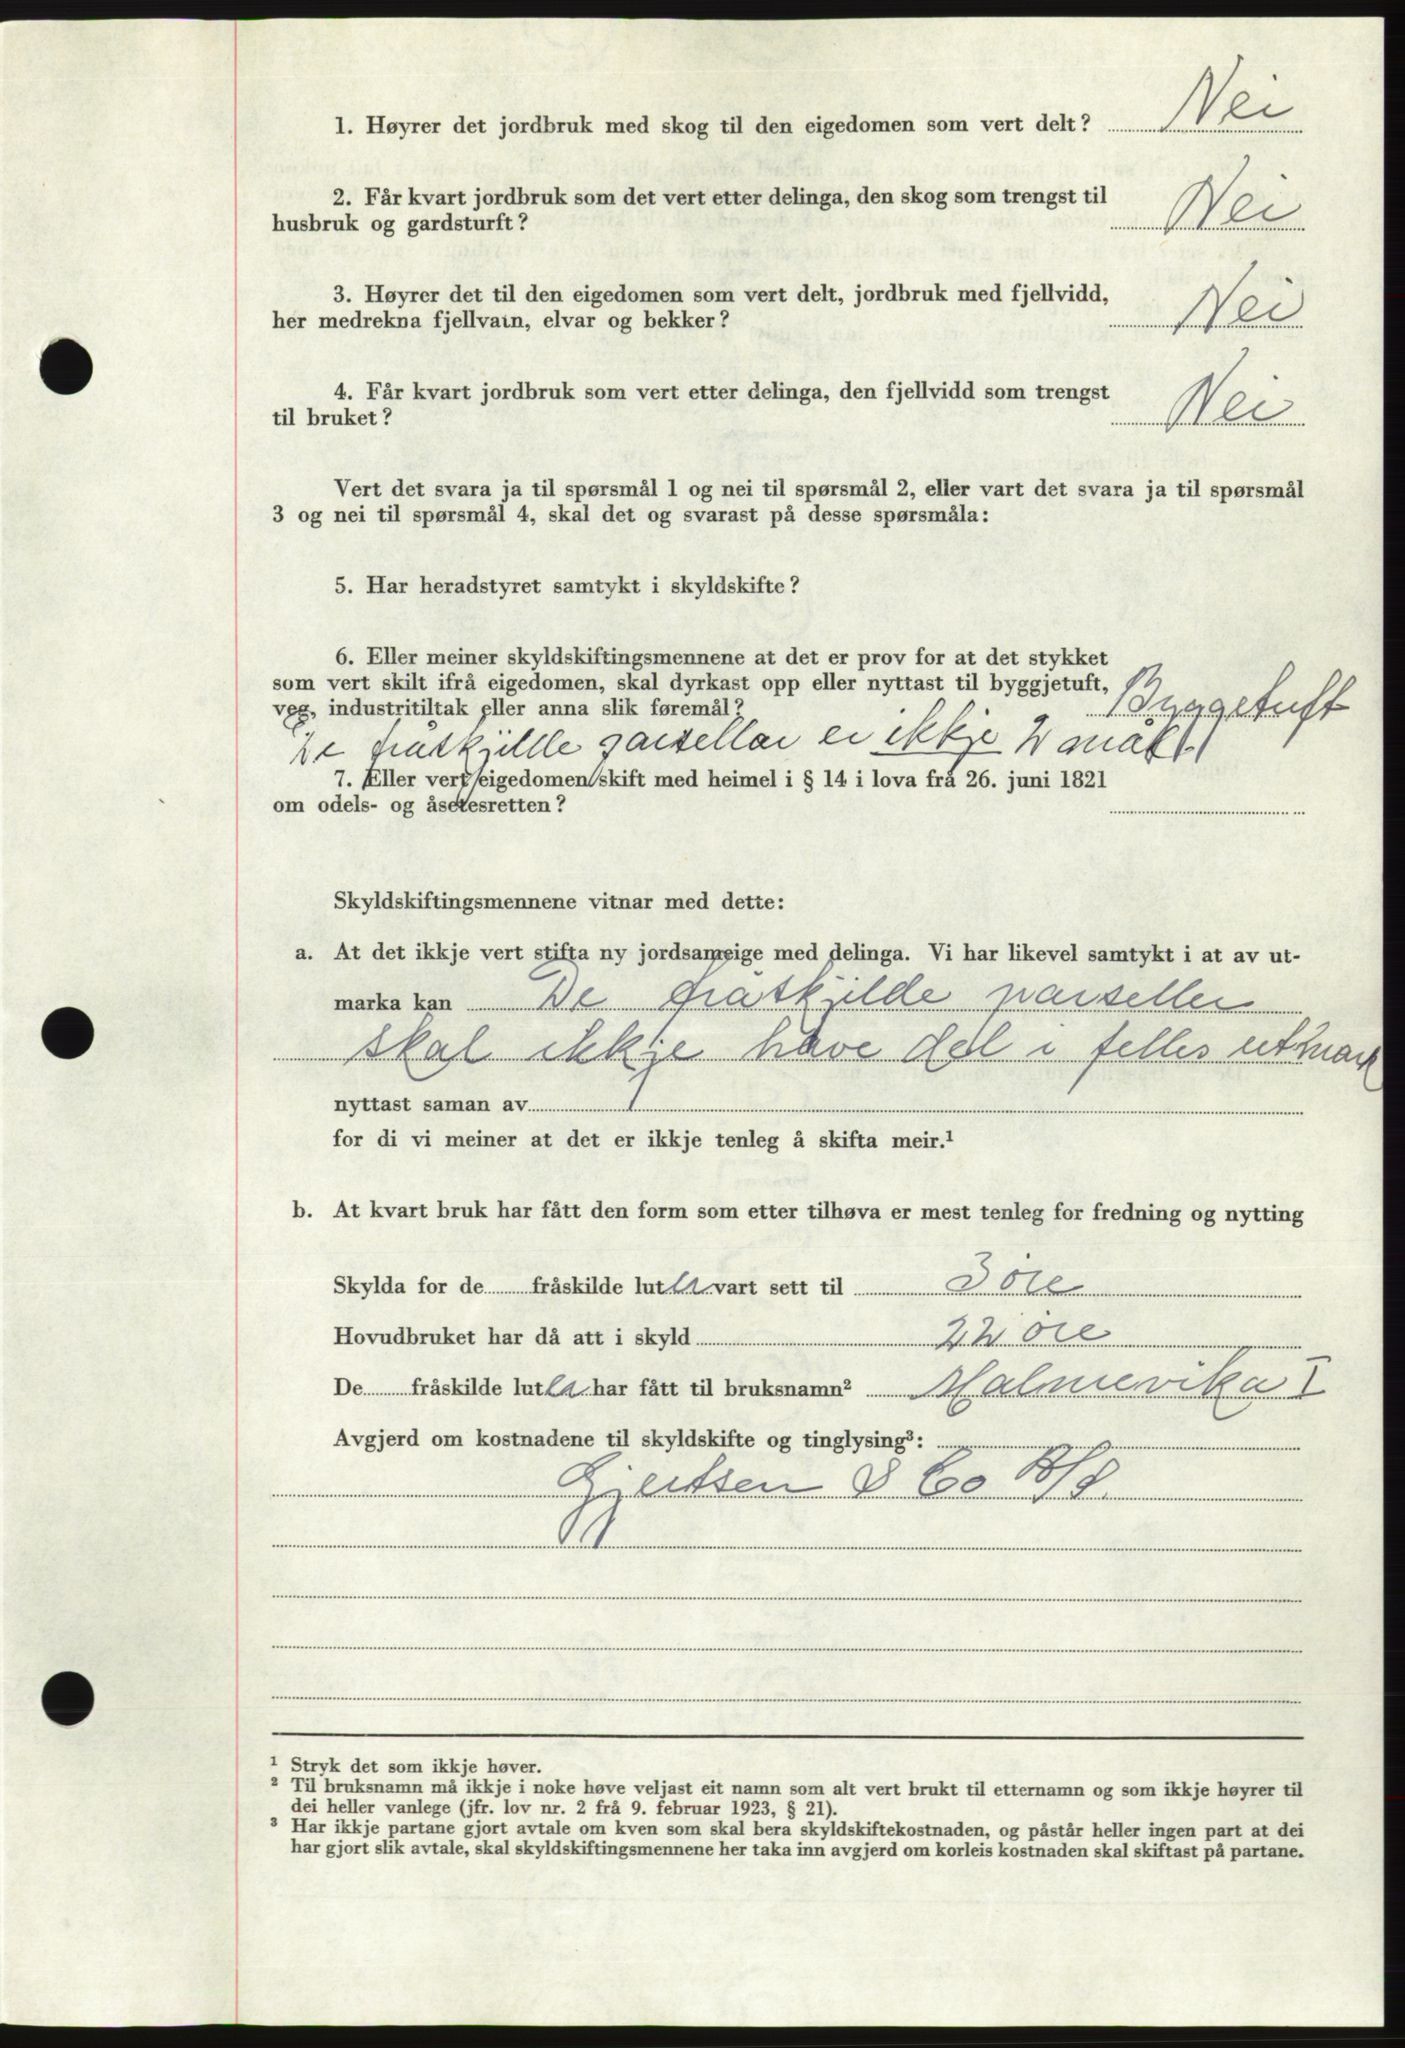 1. Høyrer det jordbruk med skog til den eigedomen som vert delt? Nei
2. Får kvart jordbruk som det vert etter delinga, den skog som trengst til
husbruk og gardsturft? Nei
3. Høyrer det til den eigedomen som vert delt, jordbruk med fjellvidd,
her medrekna fjellvatn, elvar og bekker? Nei
4. Får kvart jordbruk som vert etter delinga, den fjellvidd som trengst
til bruket? Nei
Vert det svara ja til spørsmål 1 og nei til spørsmål 2, eller vart det svara ja til spørsmål
3 og nei til spørsmål 4, skal det og svarast på desse spørsmåla:
5. Har heradstyret samtykt i skyldskifte?
6. Eller meiner skyldskiftingsmennene at det er prov for at det stykket
som vert skilt ifrå eigedomen, skal dyrkast opp eller nyttast til byggjetuft,
veg, industritiltak eller anna slik føremål? Byggetuft
De fråskjilde parsellar er ikkje 2 mål!
7. Eller vert eigedomen skift med heimel i § 14 i lova frå 26. juni 1821
om odels- og åsetesretten?
Skyldskiftingsmennene vitnar med dette:
a. At det ikkje vert stifta ny jordsameige med delinga. Vi har likevel samtykt i at av ut-
marka kan De fråskjilde parseller
skal ikkje have del i felles utmark
nyttast saman av
for di vi meiner at det er ikkje tenleg å skifta meir.¹
b. At kvart bruk har fått den form som etter tilhøva er mest tenleg for fredning og nytting
Skylda for de fråskilde luter vart sett til 3 öre
Hovudbruket har då att i skyld 22 öre
De fråskilde luter har fått til bruksnamn² Malmevika I
Avgjerd om kostnadene til skyldskifte og tinglysing³:
Gjertsen & Co A/S.
¹ Stryk det som ikkje høver.
² Til bruksnamn må ikkje i noke høve veljast eit namn som alt vert brukt til etternamn og som ikkje høyrer til
dei heller vanlege (jfr. lov nr. 2 frå 9. februar 1923, § 21).
³ Har ikkje partane gjort avtale om kven som skal bera skyldskiftekostnaden, og påstår heller ingen part at dei
har gjort slik avtale, skal skyldskiftingsmennene her taka inn avgjerd om korleis kostnaden skal skiftast på partane.